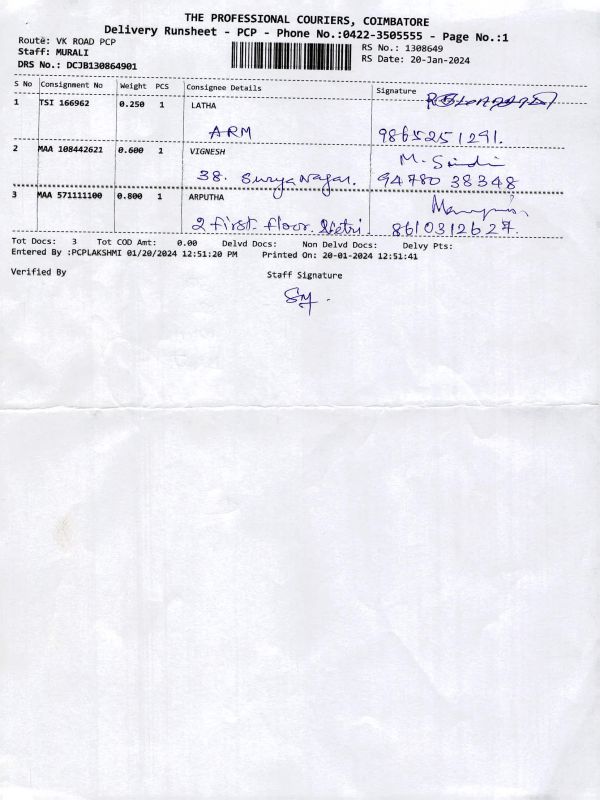 THE PROFESSIONAL COURIERS, COIMBATORE
Delivery Runsheet - PCP - Phone No.:0422-3505555 - Page No.:1
Route: VK ROAD PCP
RS No.: 1308649
Staff: MURALI
RS Date: 20-Jan-2024
DRS No.: DCJB130864901
S No Consignment No Weight PCS Consignee Details Signature
1 TSI 166962 0.250 1 LATHA
ARM 9865251291.
2 MAA 108442621 0.600 1 VIGNESH M.
38. Surya Nagar. 94780 38348
3 MAA 571111100 0.800 1 ARPUTHA
2 first floor. 8610312627.
Tot Docs: 3 Tot COD Amt: 0.00 Delvd Docs: Non Delvd Docs: Delvy Pts:
Entered By :PCPLAKSHMI 01/20/2024 12:51:20 PM Printed On: 20-01-2024 12:51:41
Verified By Staff Signature